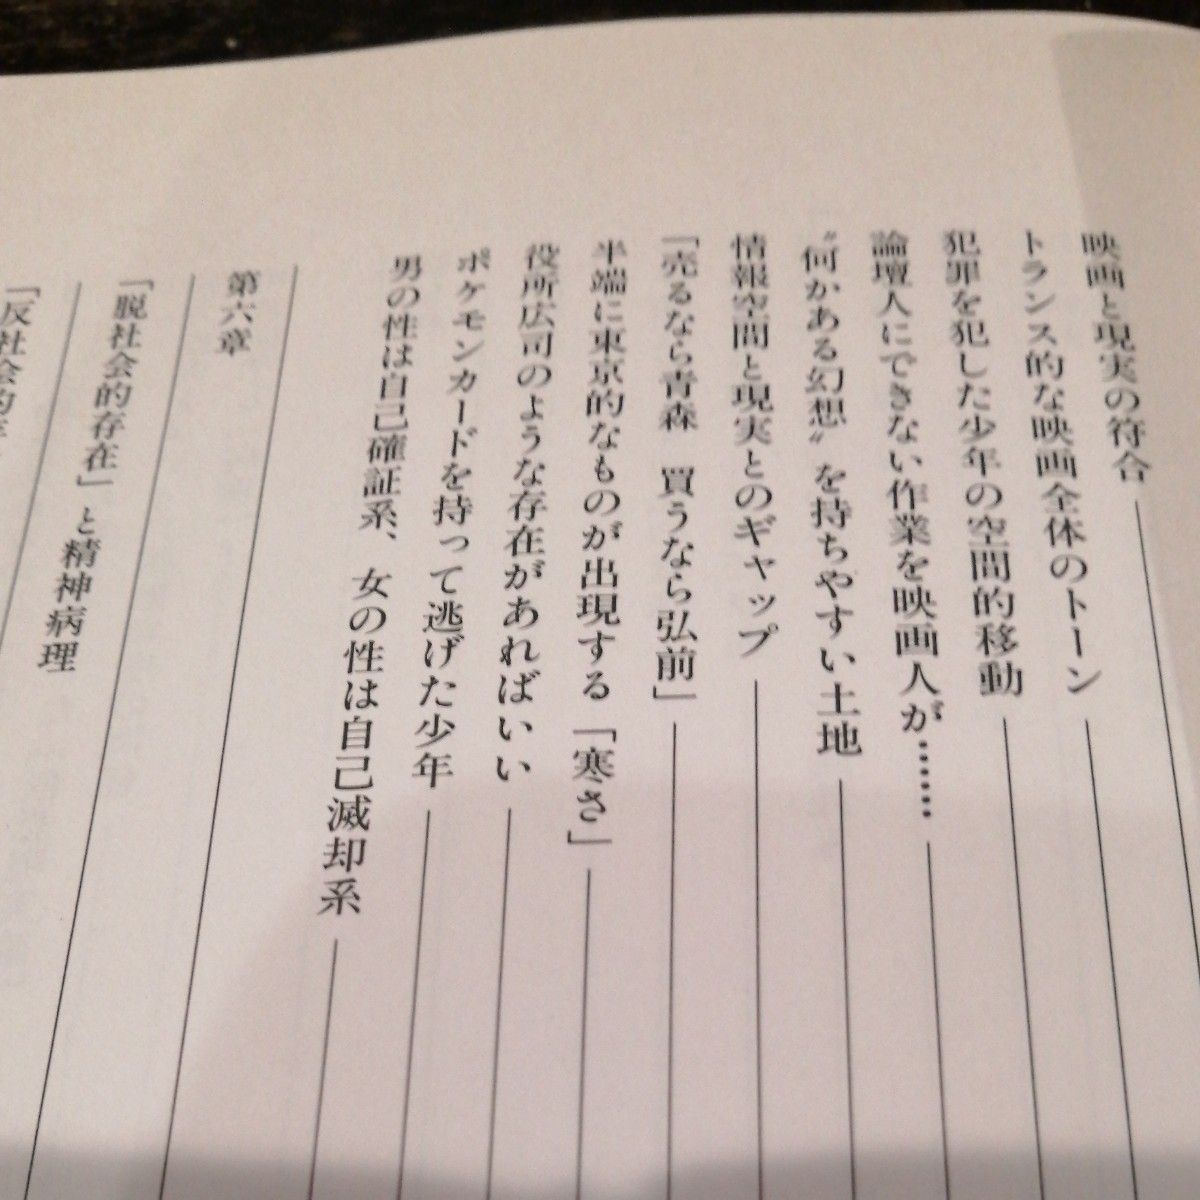 映画と現実の符合
トランス的な映画全体のトーン
犯罪を犯した少年の空間的移動
論壇人にできない作業を映画人が……
〝何かある幻想〟を持ちやすい土地
情報空間と現実とのギャップ
「売るなら青森　買うなら弘前」
半端に東京的なものが出現する「寒さ」
役所広司のような存在があればいい
ポケモンカードを持って逃げた少年
男の性は自己確証系、女の性は自己滅却系
第六章
「脱社会的存在」と精神病理
「反社会的